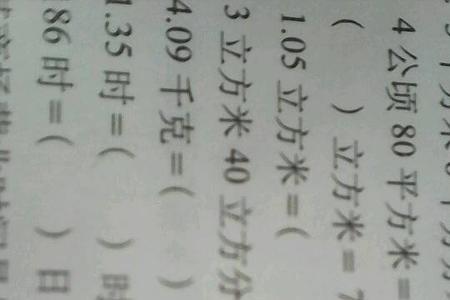 4 公顷 80 平方米=
( ) 立方米=7
1.05 立方米=(
3 立方米 40 立方分
4.09 千克=( )
1.35 时=( ) 时
86 时=( ) 日